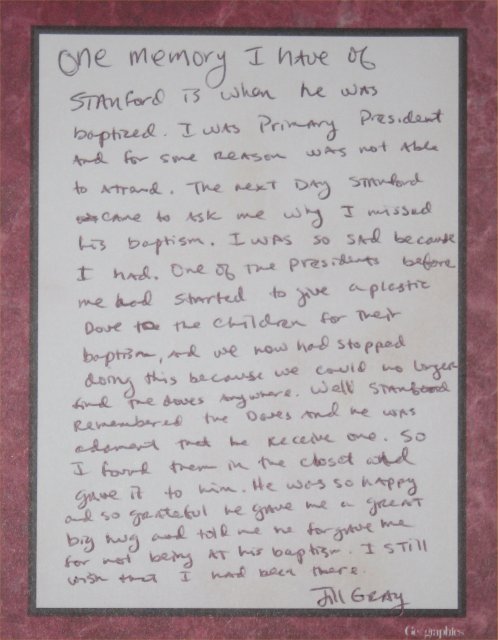 One memory I have of
Stanford is when he was
baptized. I was Primary President
and for some reason was not able
to attand. The next day Stanford
came to ask me why I missed
his baptism. I was so sad because
I had. One of the presidents before
me had started to give a plastic
Dove to the children for their
baptism, and we now had stopped
doing this because we could no longer
find the doves anywhere. Well Stanford
remembered the Doves and he was
adament that he receive one. So
I found them in the closet and
gave it to him. He was so happy
and so grateful he gave me a great
big hug and told me he forgave me
for not being at his baptism. I still
wish that I had been there.
Jill Gray
Geographics